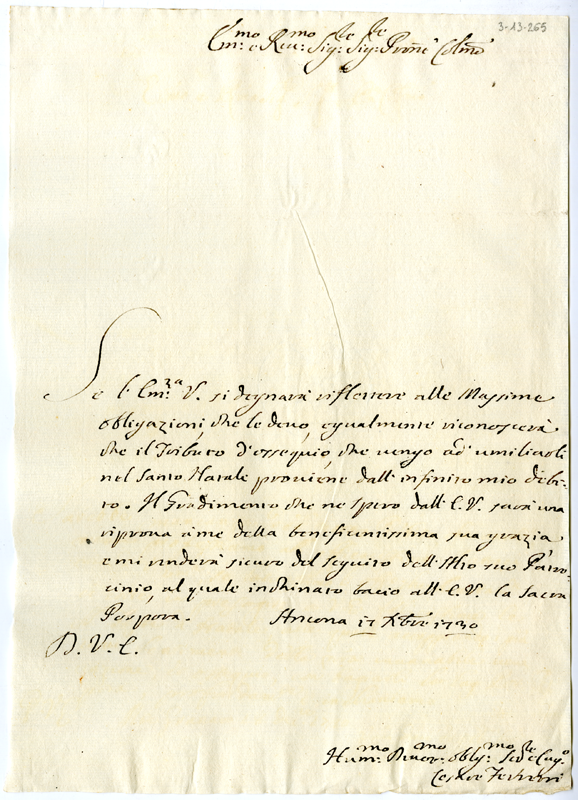 3-13-265
Em:mo e Reu:mo Sig:re Sig:re Prone Colmo
Se l'Em:za V. si degnarà riflettere alle Massime
obligazioni, che le deuo, egualmente riconoscerà
che il Tributo d'ossequio, che uengo ad' umiliarli
nel Santo Natale prouiene dall' infinito mio debi-
to. Il Gradimento che ne spero dall' E.V. sarà una
riproua à me della beneficentissima sua grazia
e mi renderà sicuro del seguito dell' Alto suo Patro-
cinio, al quale inchinato bacio all' E.V. la Sacra
Porpora. Ancona 17 Xbre 1730
D. V. E.
Hum:mo Deuot:mo oblig:mo Ser:re